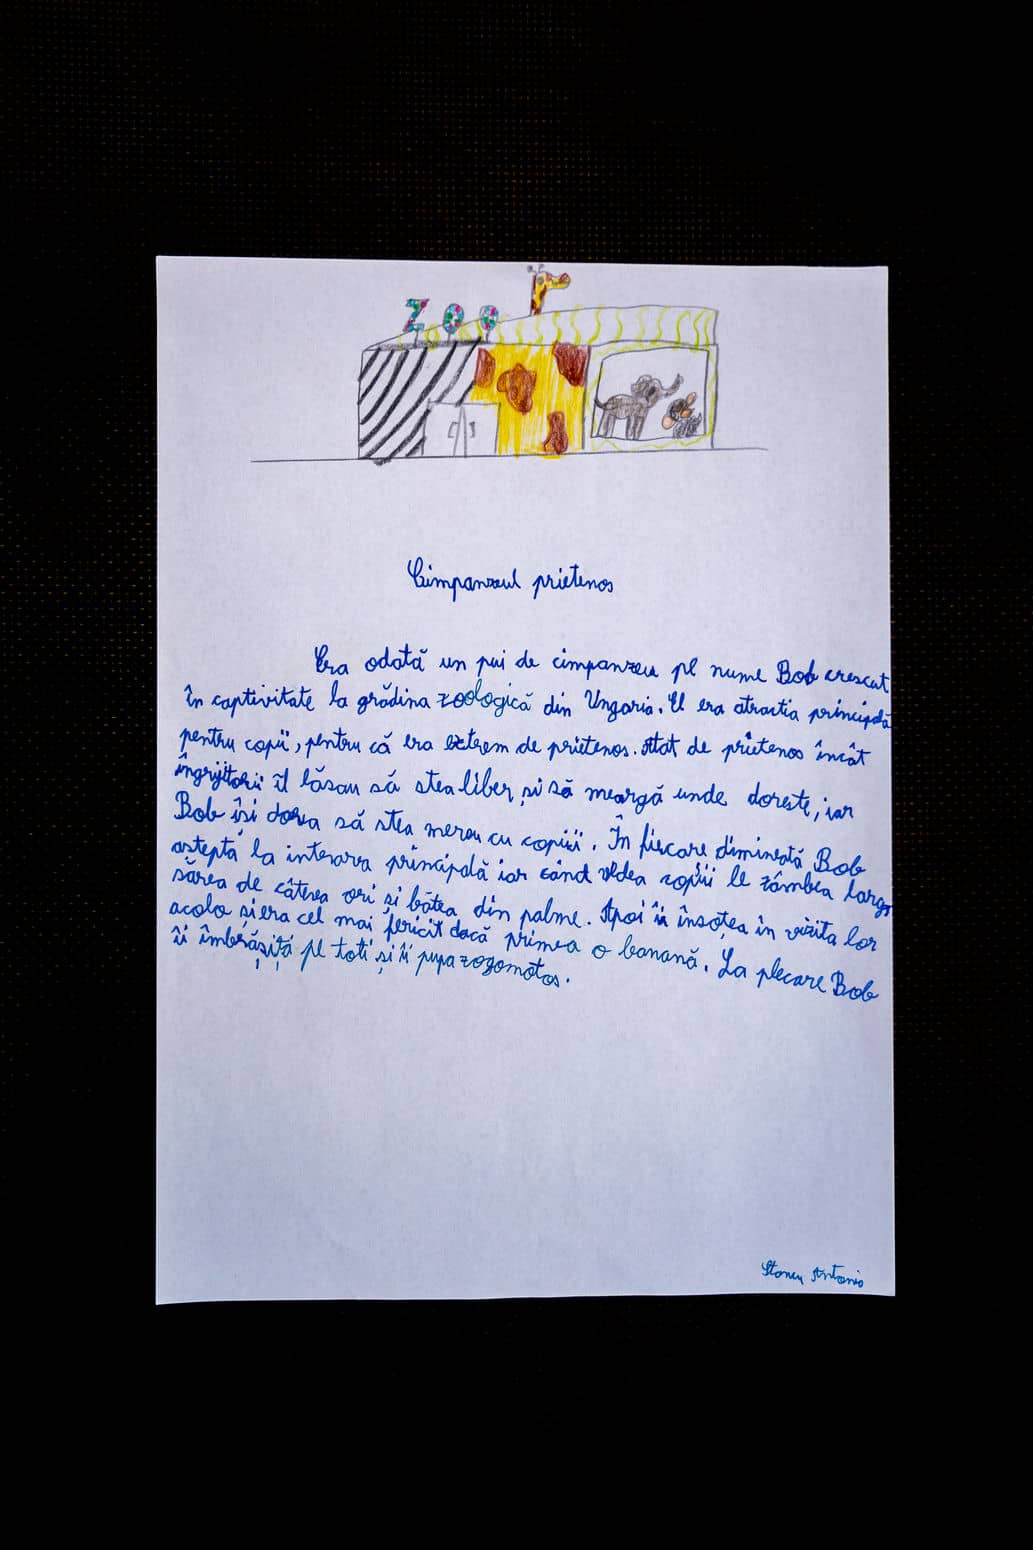 ZOO
Cimpanzeul prietenos
Era odată un pui de cimpanzeu pe nume Bob crescut
în captivitate la grădina zoologică din Ungaria. El era atractia principală
pentru copii, pentru că era extrem de prietenos. Atat de prietenos încât
îngrijitorii îl lăsau să stea liber, și să meargă unde dorește, iar
Bob își dorea să stea mereu cu copiii. În fiecare dimineată Bob
astepta la intrarea principală iar când vedea copiii le zâmbea larg,
sărea de câteva ori și bătea din palme. Apoi îi însoțea în vizita lor
acolo și era cel mai fericit dacă primea o banană. La plecare Bob
îi îmbrățișa pe toti și îi pupa zogomotos.
Stancu Antonio